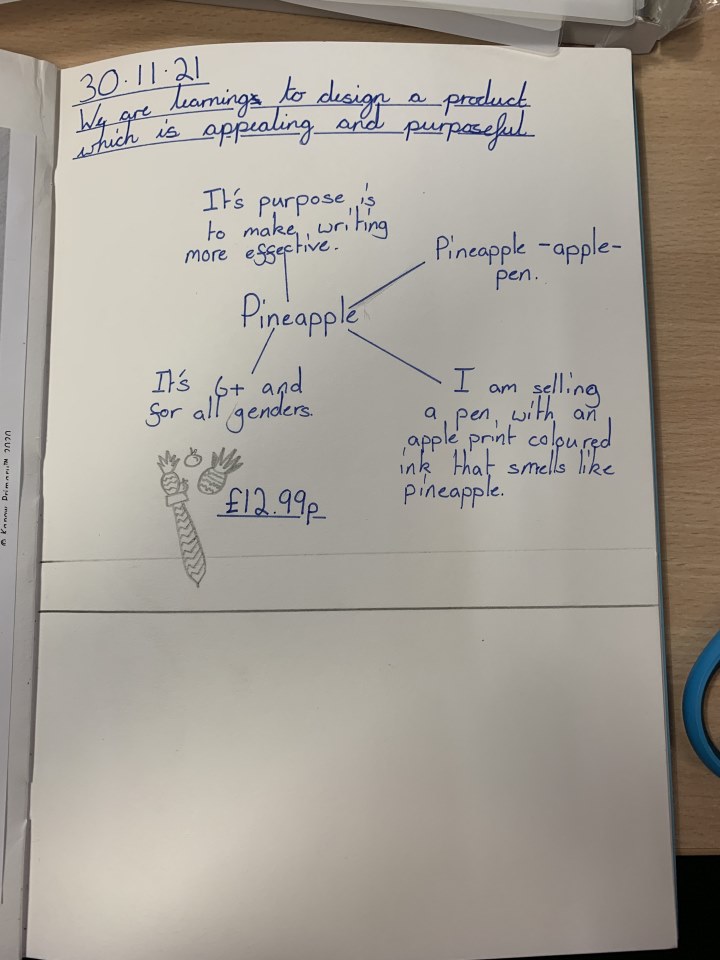 30.11.21
We are learnings to design a product
which is appealing and purposeful
It's purpose is
to make writing
more effective.
Pineapple -apple-
pen.
Pineapple
It's 6+ and
for all genders.
I am selling
a pen, with an
apple print coloured
ink that smells like
pineapple.
£12.99p